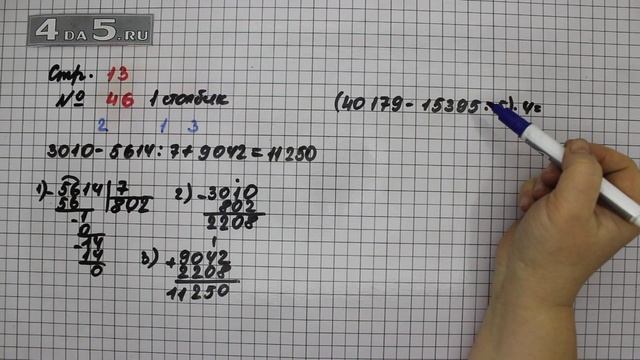 4 ДА 5.RU
Стр. 13
№ 46 1 столбик
(40179-15395:5)·4=
2 1 3
3010-5614:7+9042=11250
1) -5614|7
56 802
-1
0
-14
14
0
2) -3010
802
2208
3) +9042
2208
11250